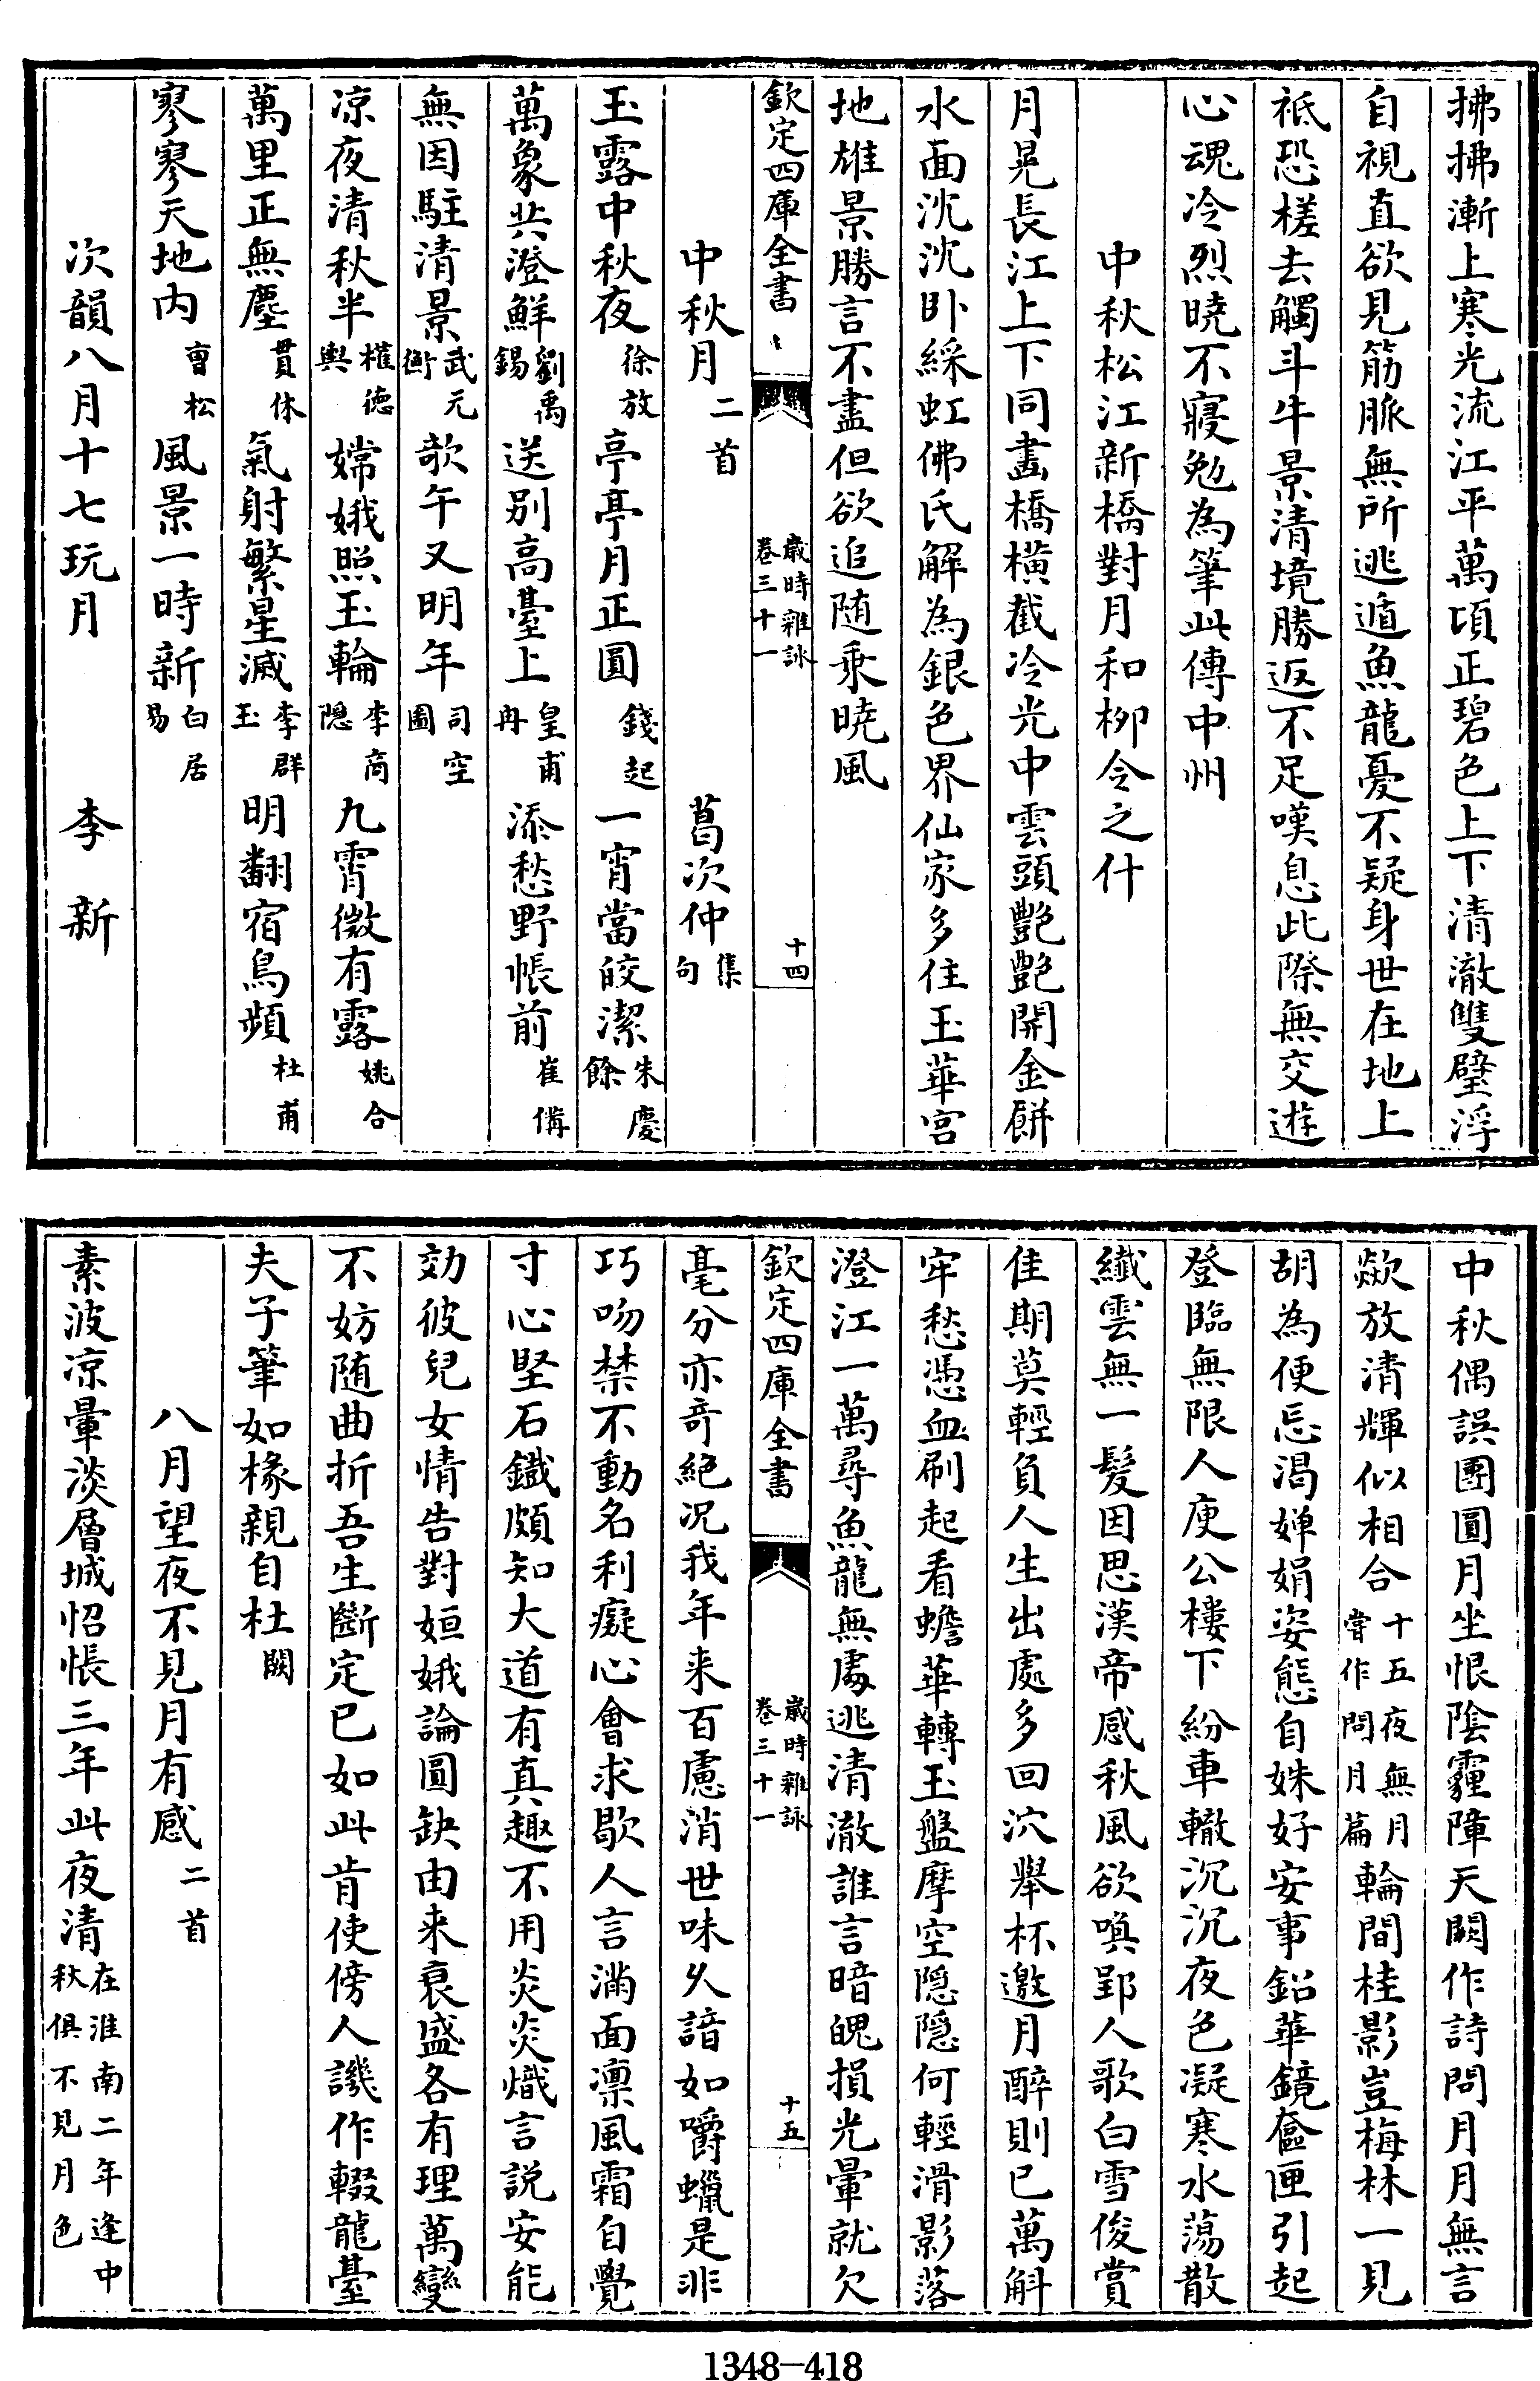 拂拂漸上寒光流江平萬頃正碧色上下清澈雙璧浮
自視直欲見筋脈無所逃遁魚龍憂不疑身世在地上
祇恐槎去觸斗牛景清境勝返不足嘆息此際無交遊
心魂冷烈曉不寢勉為筆此傳中州
中秋松江新橋對月和柳令之什
月晃長江上下同畫橋横截冷光中雲頭艷艷開金餅
水面沈沈卧綵虹佛氏解為銀色界仙家多住玉華宫
地雄景勝言不盡但欲追随乗曉風
欽定四庫全書
歲時雜詠
卷三十一
十四
中秋月二首 葛次仲集句
玉露中秋夜徐放亭亭月正圓錢起一宵當皎潔朱慶餘
萬象共澄鮮劉禹錫送别高臺上皇甫冉添愁野帳前崔備
無因駐清景武元衡歌午又明年司空圖
凉夜清秋半權德輿嫦娥照玉輪李商隠九霄微有露姚合
萬里正無塵貫休氣射繁星滅李群玉明翻宿鳥頻杜甫
寥寥天地内曺松風景一時新白居易
次韻八月十七玩月 李新
中秋偶誤團圓月坐恨陰霾障天闕作詩問月月無言
歘放清輝似相合十五夜無月嘗作問月篇輪間桂影豈梅林一見
胡為便忘渴嬋娟姿態自姝好安事鉛華鏡奩匣引起
登臨無限人庾公樓下紛車轍沉沉夜色凝寒水蕩散
纎雲無一髮因思漢帝感秋風欲喚郢人歌白雪俊賞
佳期莫輕負人生出處多回泬舉杯邀月醉則已萬斛
牢愁憑血刷起看蟾華轉玉盤摩空隠隠何輕滑影落
澄江一萬尋魚龍無處逃清澈誰言暗魄損光暈就欠
欽定四庫全書
歲時雜詠
卷三十一
十五
毫分亦竒絶况我年来百慮消世味乆諳如嚼蠟是非
巧吻禁不動名利癡心會求歇人言滿面凛風霜自覺
寸心堅石鐵頗知大道有真趣不用炎炎熾言説安能
効彼兒女情告對姮娥論圓缺由来衰盛各有理萬變
不妨随曲折吾生斷定已如此肯使傍人譏作輟龍臺
夫子筆如椽親自杜闕
八月望夜不見月有感二首
素波凉暈淡層城怊悵三年此夜清在淮南二年逢中秋俱不見月色
1348-418